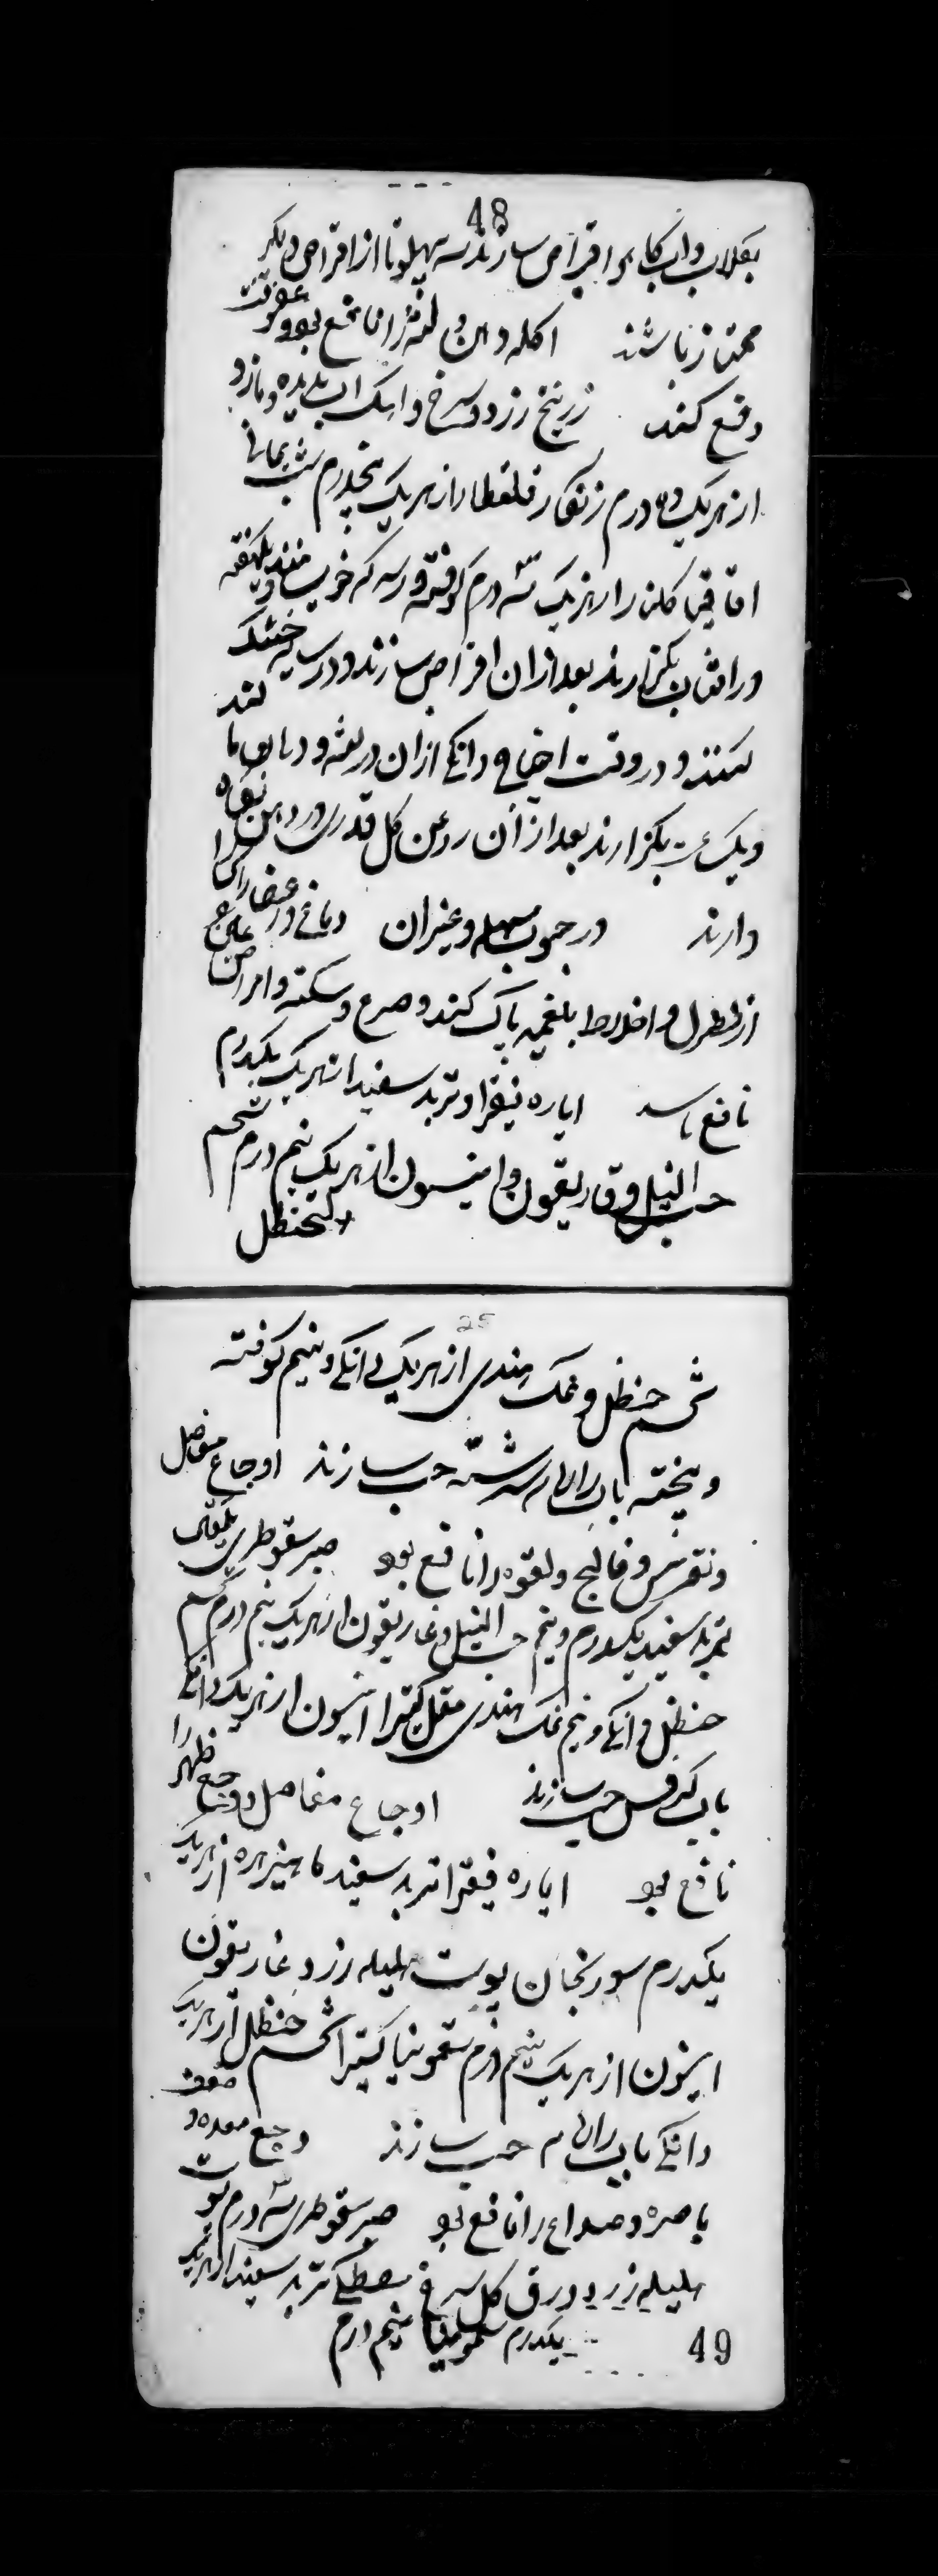 48
بگلاب و اب کاه اقراص سازند سه پهلو تا از اقراص دیگر
ممتاز باشند اکله دهن و لثه را نافع بود و عفونت
دفع کند زرنیخ زرد و سرخ و اهک اب ندیده و مازو
از هریک ده درم زنکار قلقطار از هریک پنجدرم شب یمانی
اقاقیا کلنار از هریک سه درم کوفته در سرکه خویسانند و یکهفته
در افتاب بکزارند بعد از ان اقراص سازند و در سایه خشک
کنند و در وقت احتیاج دانکی از ان در لثه و دهان مالند
و یکساعت بکزارند بعد از ان روغن کل قدری در دهن نکاه
دارند در حبوب مسهله و غیران دماغ و اعضا را
از فضول و اخلاط بلغمیه پاک کند و صرع و سکته و امراض
نافع باشد ایاره فیقرا و تربد سفید از هریک یکدرم
حب النیل و غاریقون و انیسون از هریک نیم درم شحم
الحنظل
25
شحم حنظل و نمک هندی از هریک دانکی و نیم کوفته
و بیخته باب رازیانه سرشته حب سازند اوجاع مفاصل
و نقرس و فالج و لقوه را نافع بود صبر سقوطری یکمثقال
تربد سفید یکدرم و نیم حب النیل و غاریقون از هریک نیم درم شحم
حنظل دانکی و نیم نمک هندی مقل کتیرا انیسون از هریک دانکی
باب کرفس حب سازند اوجاع مفاصل و وجع ظهر را
نافع بود ایاره فیقرا تربد سفید ماهیزهره از هریک
یکدرم سورنجان پوست هلیله زرد غاریقون
انیسون از هریک نیم درم سقمونیا کتیرا شحم حنظل از هریک
دانکی باب رازیانه حب سازند وجع معده و ضعف
باصره و صداع را نافع بود صبر سقوطری سه درم پوست
هلیله زرد ورق کل سرخ مصطکی تربد سفید از هریک
یکدرم سقمونیا نیم درم
49